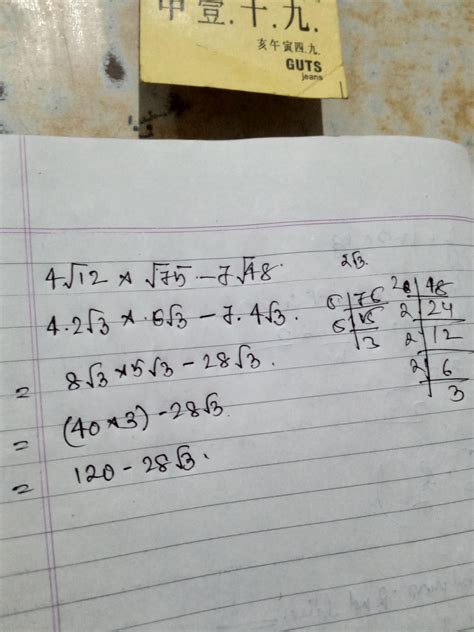 甲壹.十.九.
亥午寅四.九.
GUTS
jeans
4√12 × √75 - 7√48.
4.2√3 × 5√3 - 7.4√3.
= 8√3 × 5√3 - 28√3
= (40 × 3) - 28√3
= 120 - 28√3.
2√3.
5 | 75
5 | 15
3
2 | 48
2 | 24
2 | 12
2 | 6
3